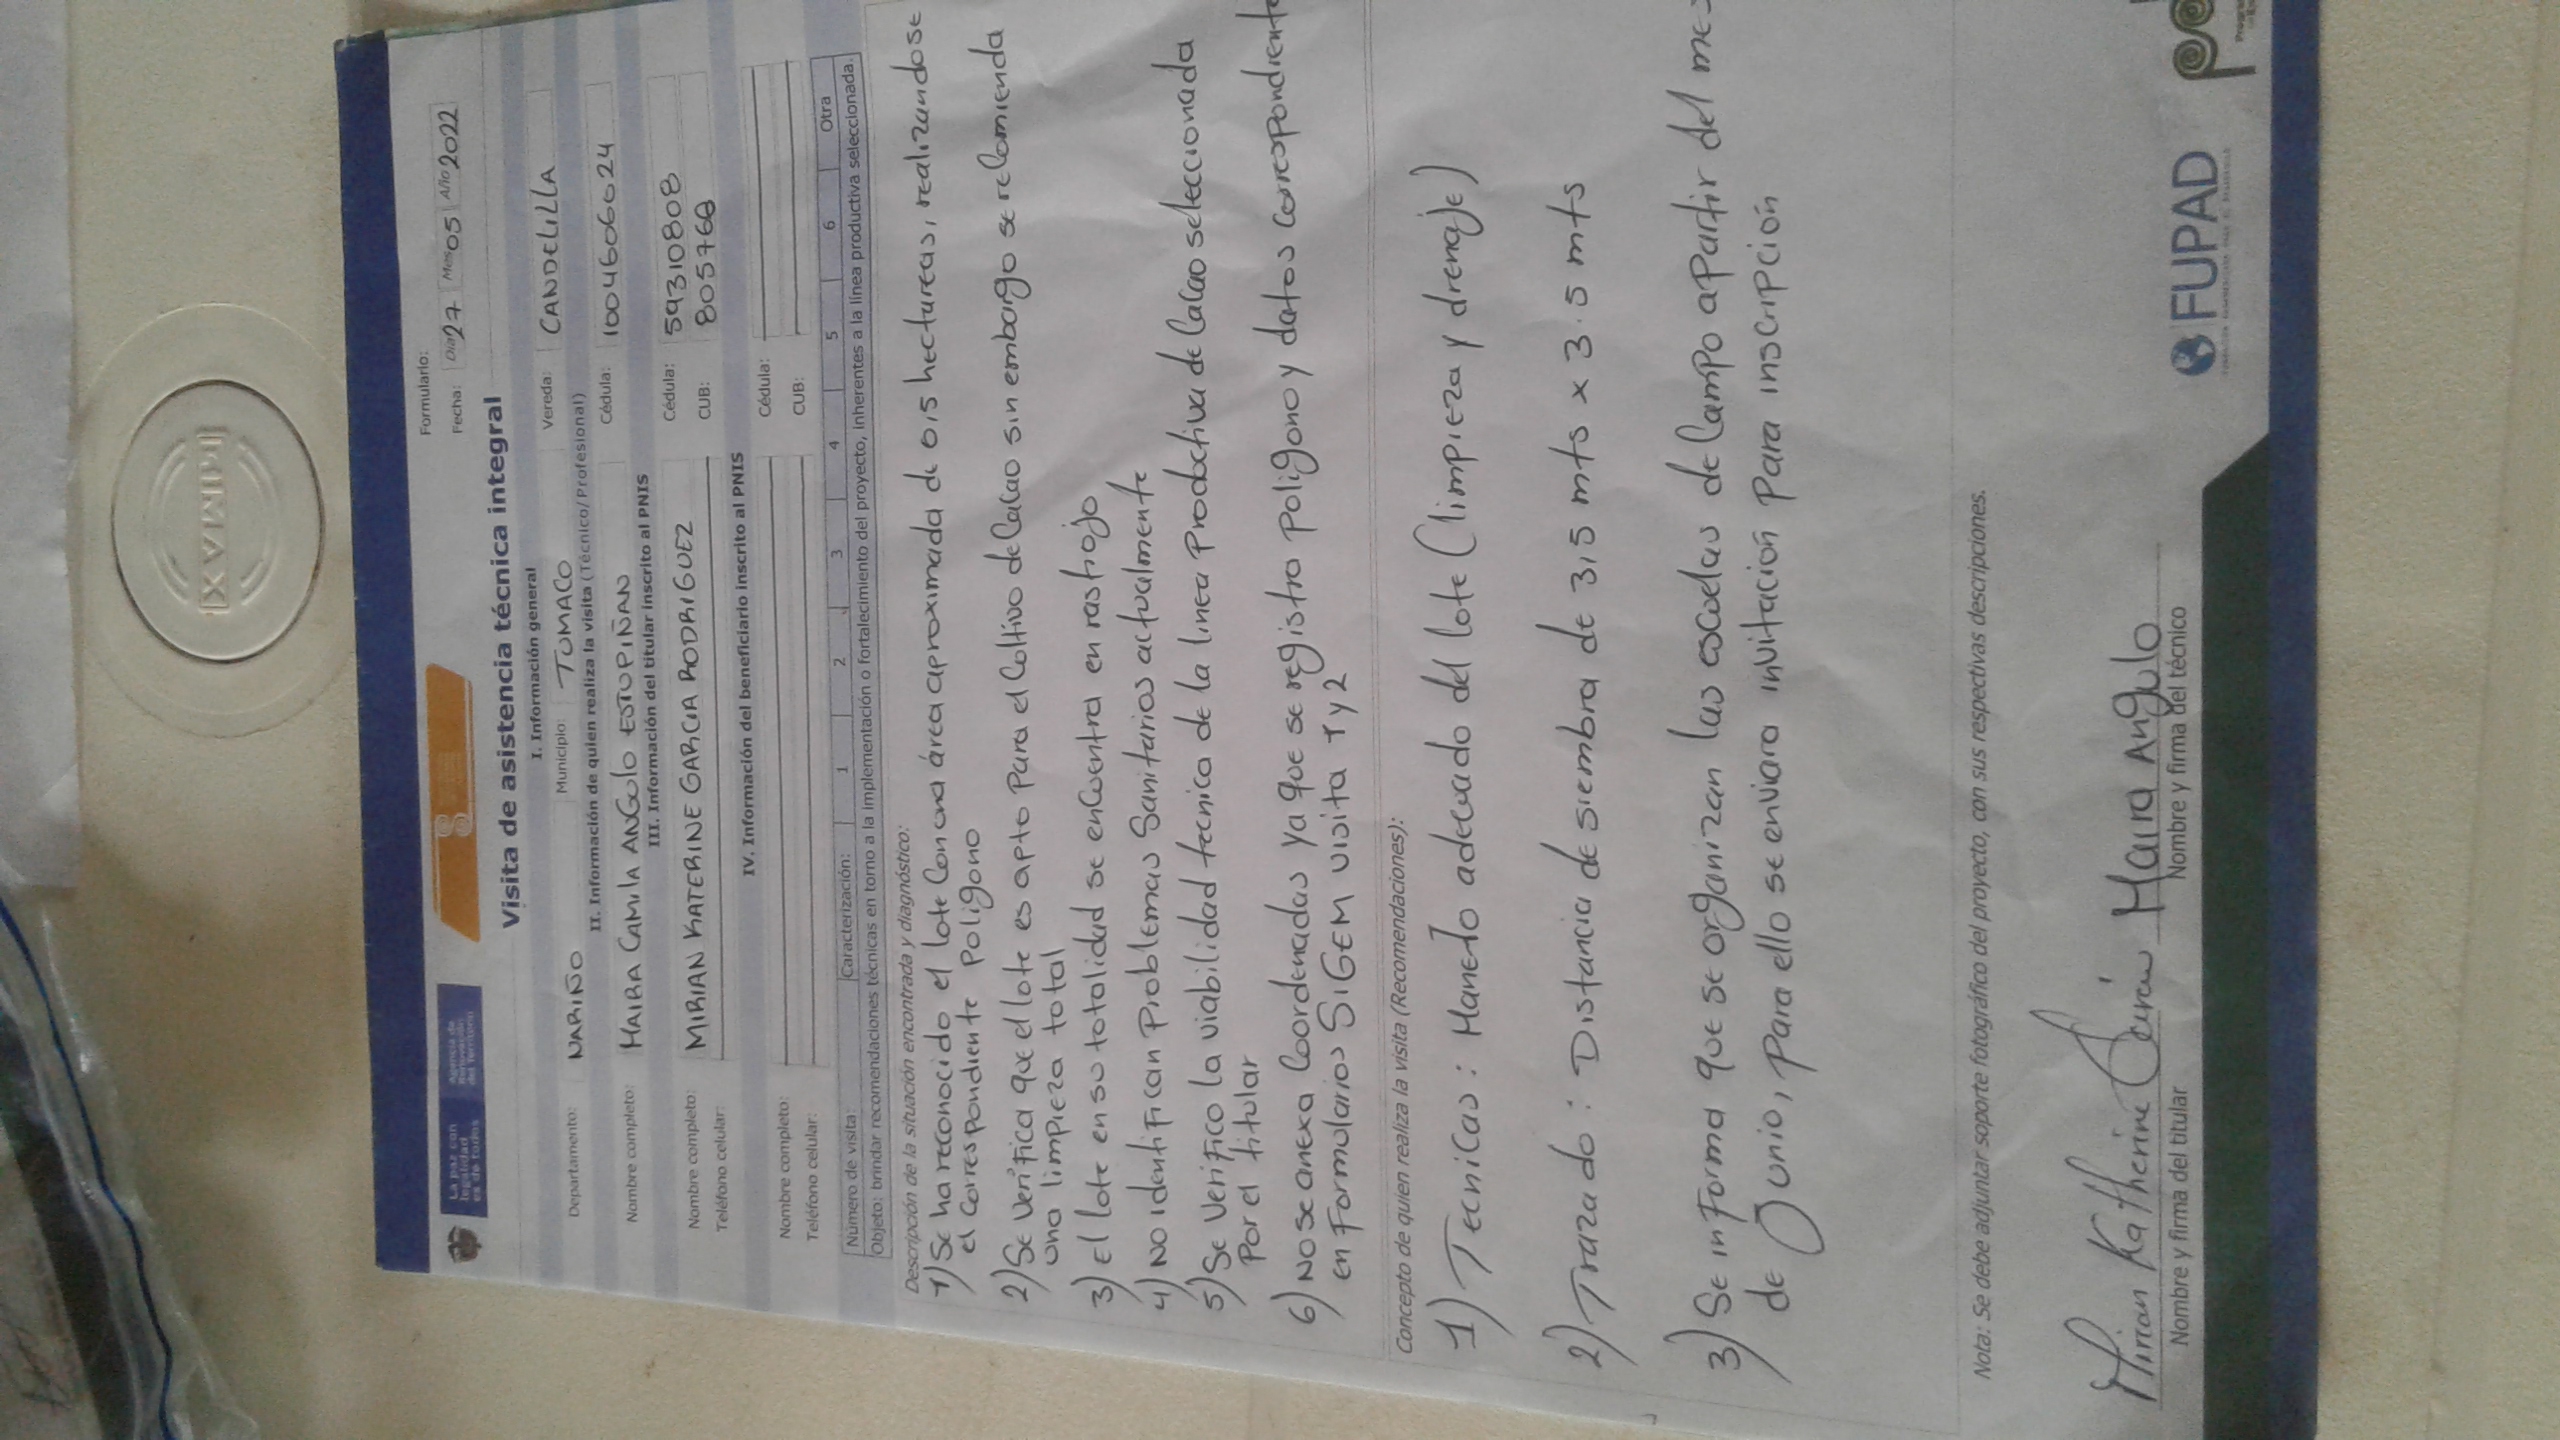 La paz con
legalidad
es de todos
Agencia de
Renovación
del Territorio
Formulario:
Fecha: Día 27 Mes 05 Año 2022
Visita de asistencia técnica integral
I. Información general
Departamento: NARIÑO Municipio: TUMACO Vereda: CANDELILLA
II. Información de quien realiza la visita (Técnico/Profesional)
Nombre completo: MAIRA CAMILA ANGULO ESTUPIÑAN Cédula: 1004606024
III. Información del titular inscrito al PNIS
Nombre completo: MIRIAN KATERINE GARCIA RODRIGUEZ Cédula: 59310808
Teléfono celular: CUB: 805768
IV. Información del beneficiario inscrito al PNIS
Nombre completo: Cédula:
Teléfono celular: CUB:
Número de visita: Caracterización: 1 2 3 4 5 6 Otra
Objeto: brindar recomendaciones técnicas en torno a la implementación o fortalecimiento del proyecto, inherentes a la línea productiva seleccionada.
Descripción de la situación encontrada y diagnóstico:
1) Se ha reconocido el lote con una área aproximada de 0,5 hectareas, realizandose
el correspondiente Poligono
2) Se verifica que el lote es apto para el cultivo de Cacao sin embargo se relomienda
una limpieza total
3) El lote en su totalidad se encuentra en rastrojo
4) No identifican Problemas Sanitarios actualmente
5) Se verifico la viabilidad tecnica de la linea productiva de Cacao seleccionada
Por el titular
6) No se anexa Coordenadas ya que se registro poligono y datos correspondiente
en formularios SIGEM visita 1 y 2
Concepto de quien realiza la visita (Recomendaciones):
1) Tecnicas: Manejo adecuado del lote (limpieza y drenaje)
2) Trazado: Distancia de siembra de 3,5 mts x 3.5 mts
3) Se informa que se organizan las escuelas de Campo apartir del mes
de Junio, para ello se enviara invitación para inscripción
Nota: Se debe adjuntar soporte fotográfico del proyecto, con sus respectivas descripciones.
Mirian Katherine Garcia Maira Angulo
Nombre y firma del titular Nombre y firma del técnico
FUPAD
MIMAX